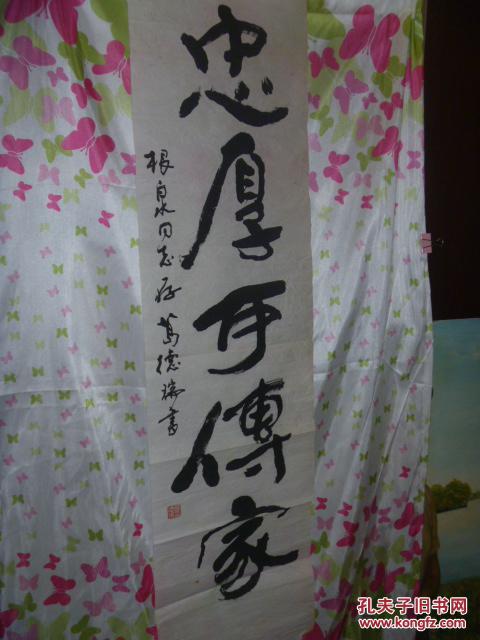 忠厚可傳家
根泉同志存 德瑞書
孔夫子旧书网
www.kongfz.com